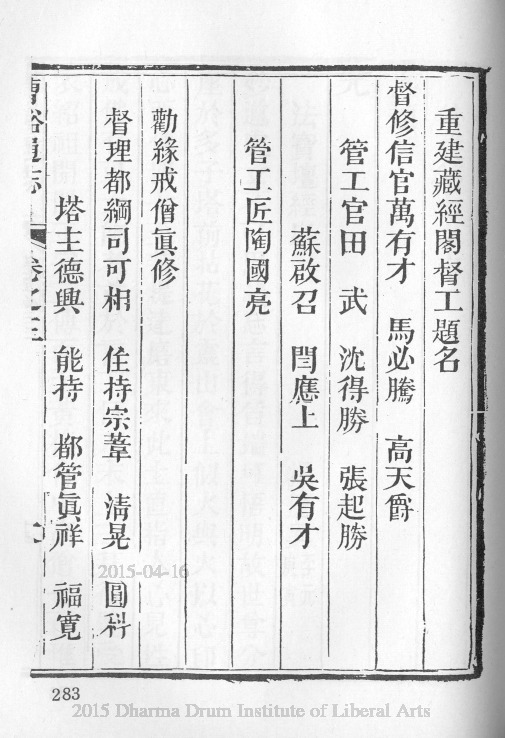 重建藏經閣督工題名
督修信官萬有才 馬必騰 高天爵
管工官田 武 沈得勝 張起勝
蘇啟召 閆應上 吳有才
管工匠陶國亮
勸緣戒僧眞修
督理都綱司可相 住持宗葦 清晃 圓科
塔主德興 能持 都管眞祥 福寬
卷之三
283
2015-04-16
2015 Dharma Drum Institute of Liberal Arts